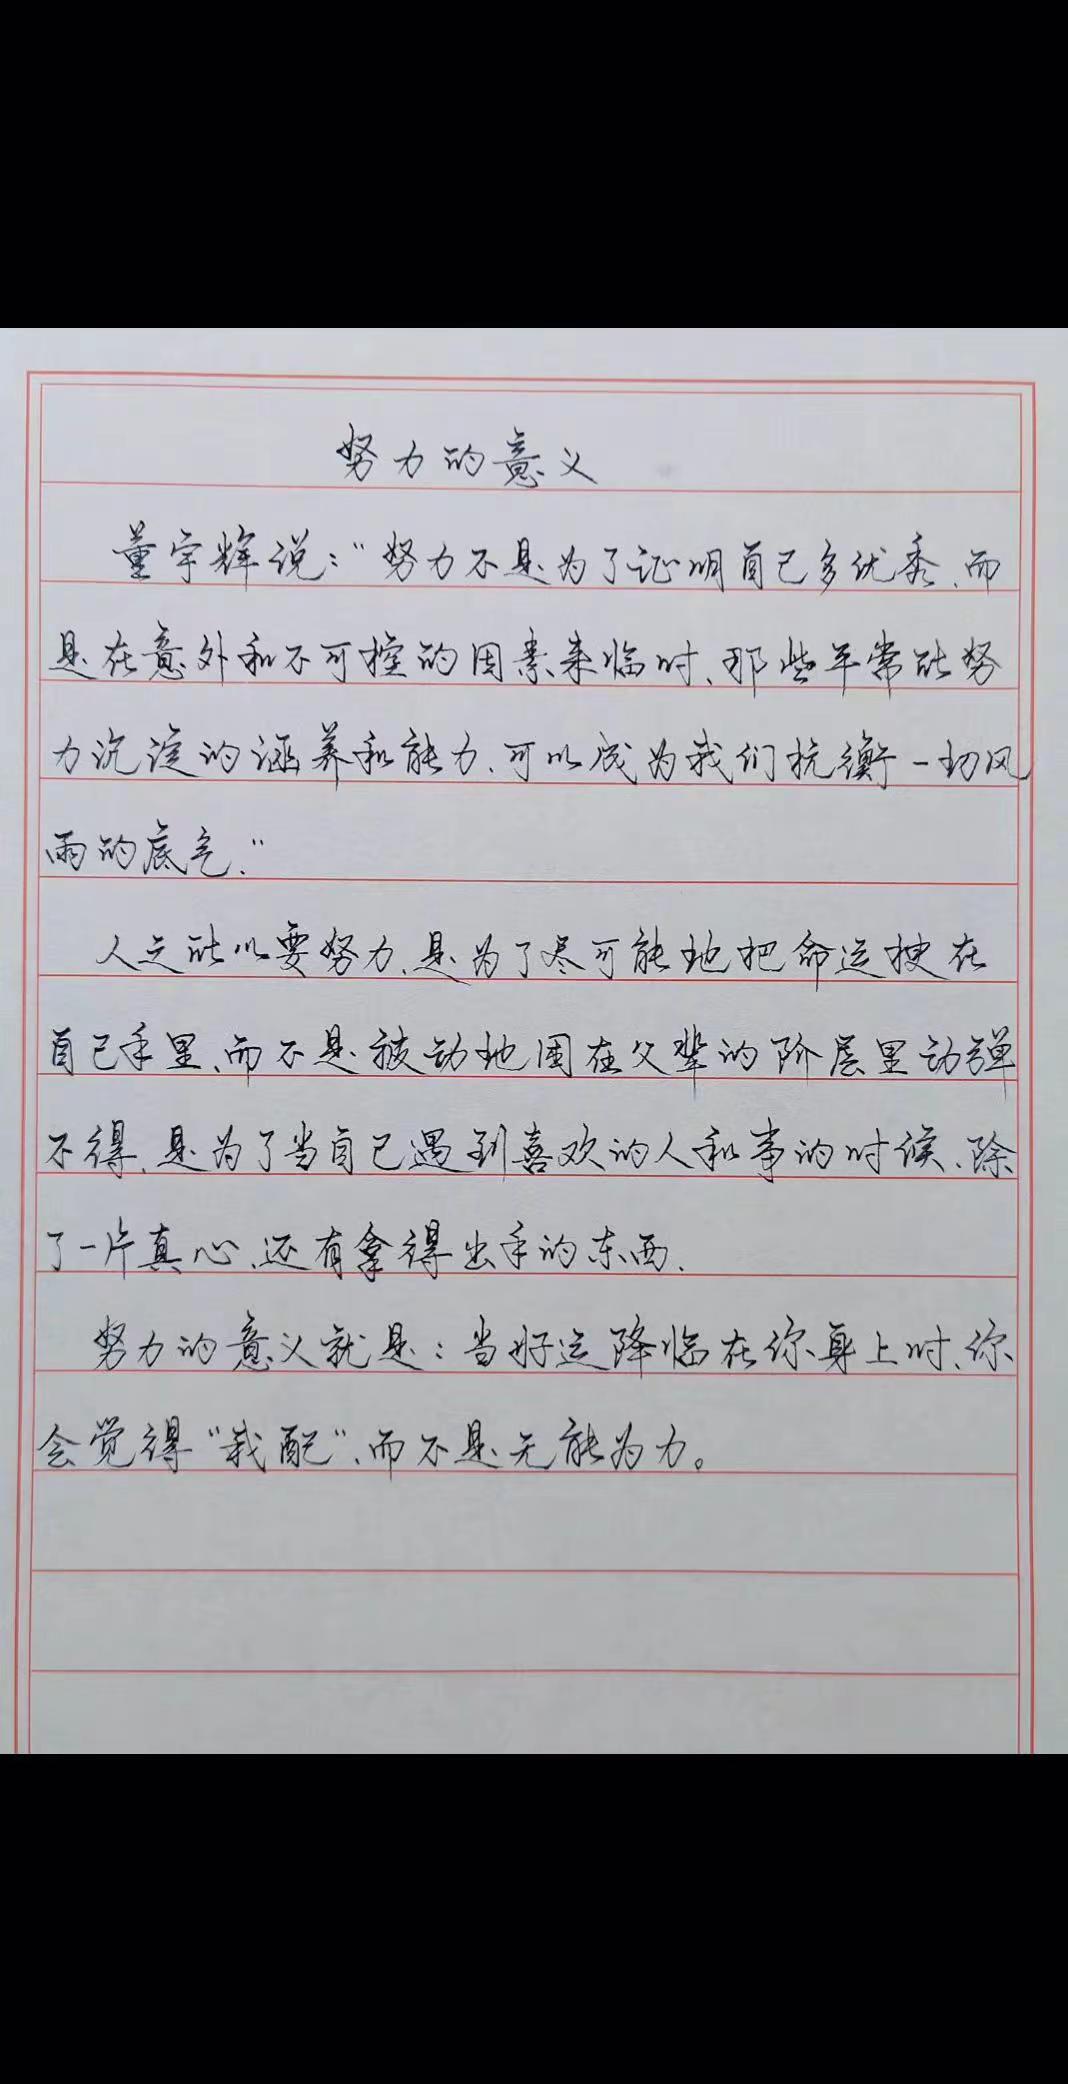 努力的意义
董宇辉说："努力不是为了证明自己多优秀,而
是在意外和不可控的因素来临时,那些平常所努
力沉淀的涵养和能力,可以成为我们抗衡一切风
雨的底气."
人之所以要努力,是为了尽可能地把命运握在
自己手里,而不是被动地困在父辈的阶层里动弹
不得,是为了当自己遇到喜欢的人和事的时候,除
了一片真心,还有拿得出手的东西.
努力的意义就是：当好运降临在你身上时,你
会觉得"我配",而不是无能为力。